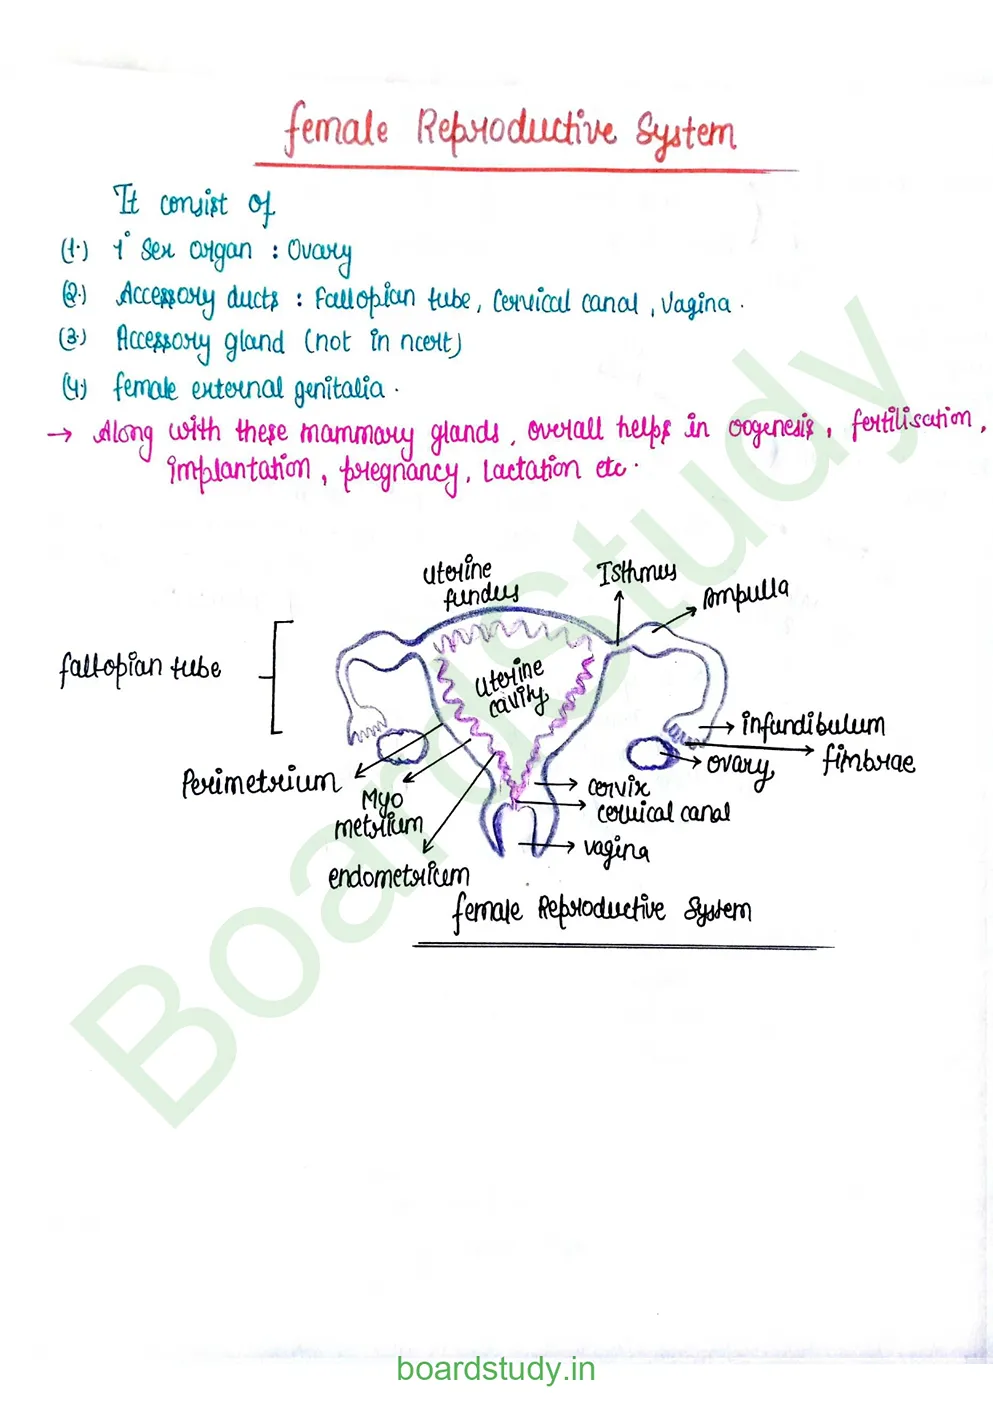 female Reproductive System
It consist of
(1.) 1° Sex organ : Ovary
(2.) Accessory ducts : Fallopian tube, Cervical canal, vagina.
(3.) Accessory gland (not in ncert)
(4.) female external genitalia.
→ Along with these mammary glands, overall helps in oogenesis, fertilisation,
implantation, pregnancy, Lactation etc.
uterine
fundus
Isthmus
Ampulla
fallopian tube
uterine
cavity
infundibulum
fimbrae
ovary
Perimetrium
Myo
metrium
endometrium
cervix
cervical canal
vagina
female Reproductive System
BoardStudy
boardstudy.in